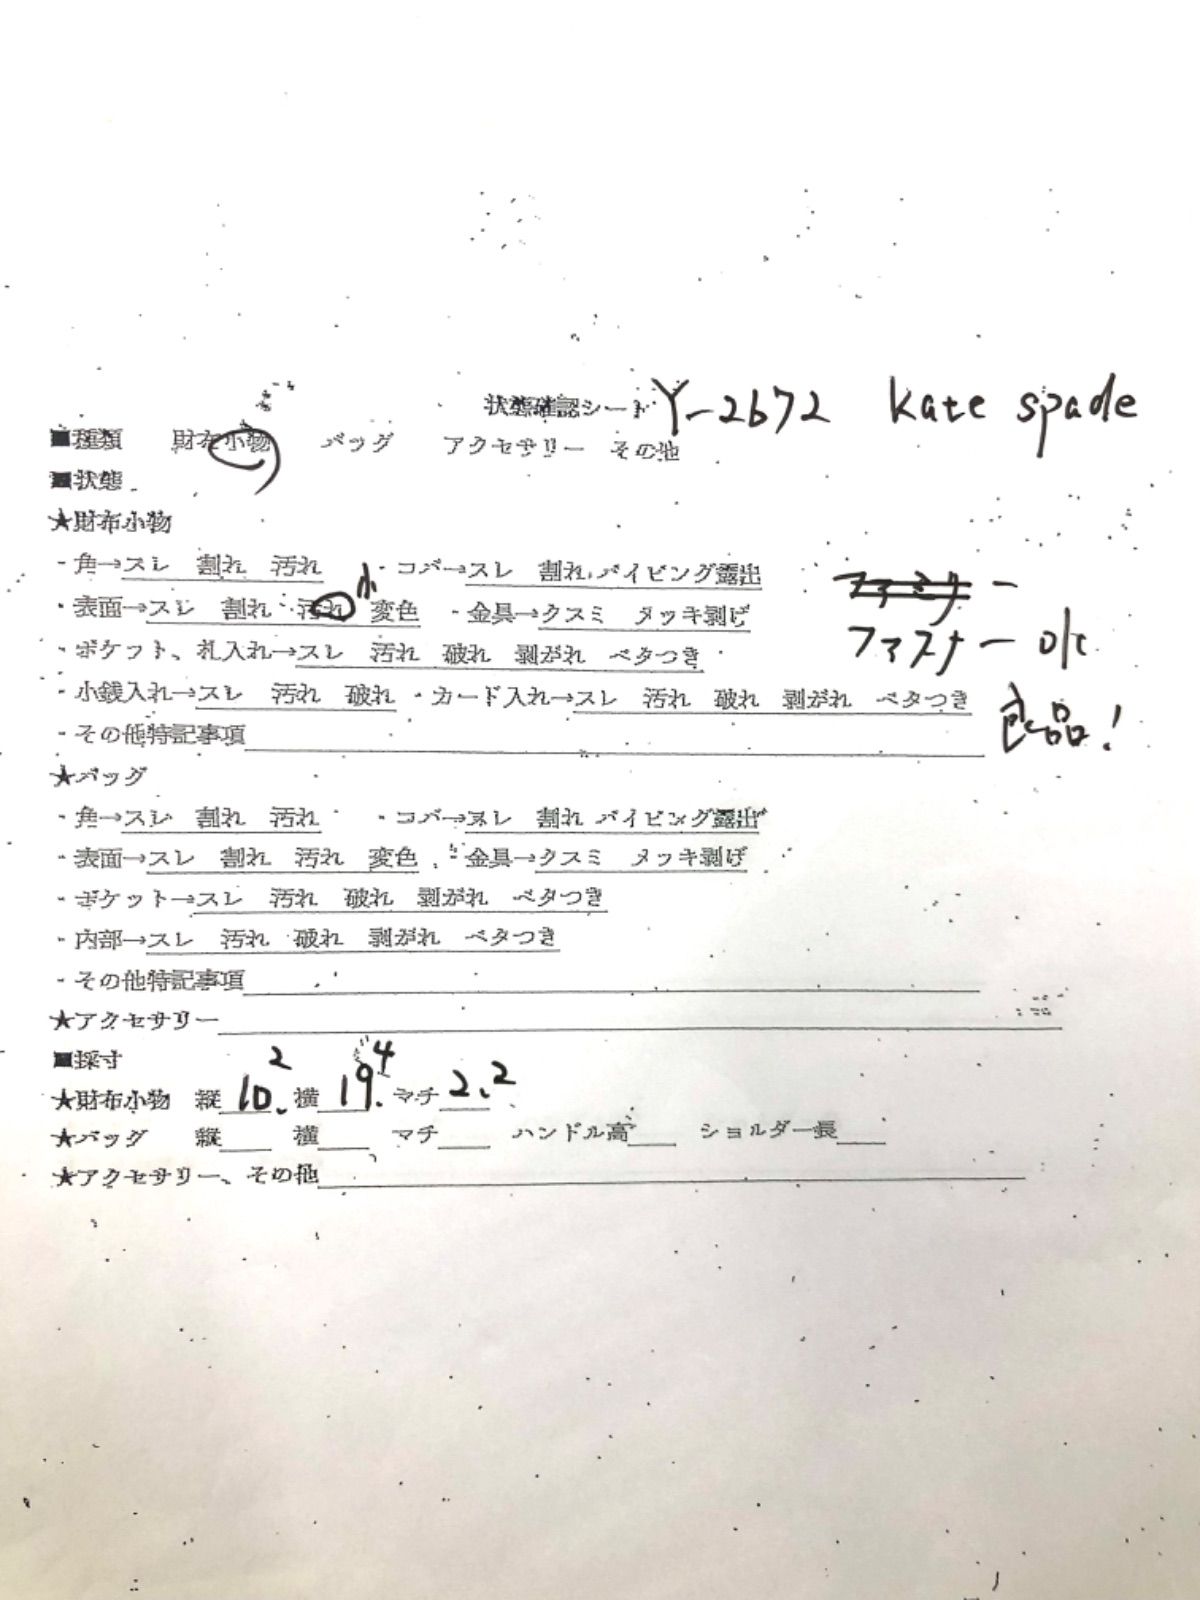 状態確認シート Y-2672 kate spade
■種類 財布小物 バッグ アクセサリー その他
■状態
★財布小物
・角→スレ 割れ 汚れ ・コバ→スレ 割れ パイピング露出
小
・表面→スレ 割れ 汚れ 変色 ・金具→クスミ メッキ剥げ
ファスナー ok
・ポケット、札入れ→スレ 汚れ 破れ 剥がれ ベタつき
・小銭入れ→スレ 汚れ 破れ ・カード入れ→スレ 汚れ 破れ 剥がれ ベタつき
良品!
・その他特記事項
★バッグ
・角→スレ 割れ 汚れ ・コバ→スレ 割れ パイピング露出
・表面→スレ 割れ 汚れ 変色 ・金具→クスミ メッキ剥げ
・ポケット→スレ 汚れ 破れ 剥がれ ベタつき
・内部→スレ 汚れ 破れ 剥がれ ベタつき
・その他特記事項
★アクセサリー
■採寸
★財布小物 縦 10.2 横 19.4 マチ 2.2
★バッグ 縦 横 マチ ハンドル高 ショルダー長
★アクセサリー、その他